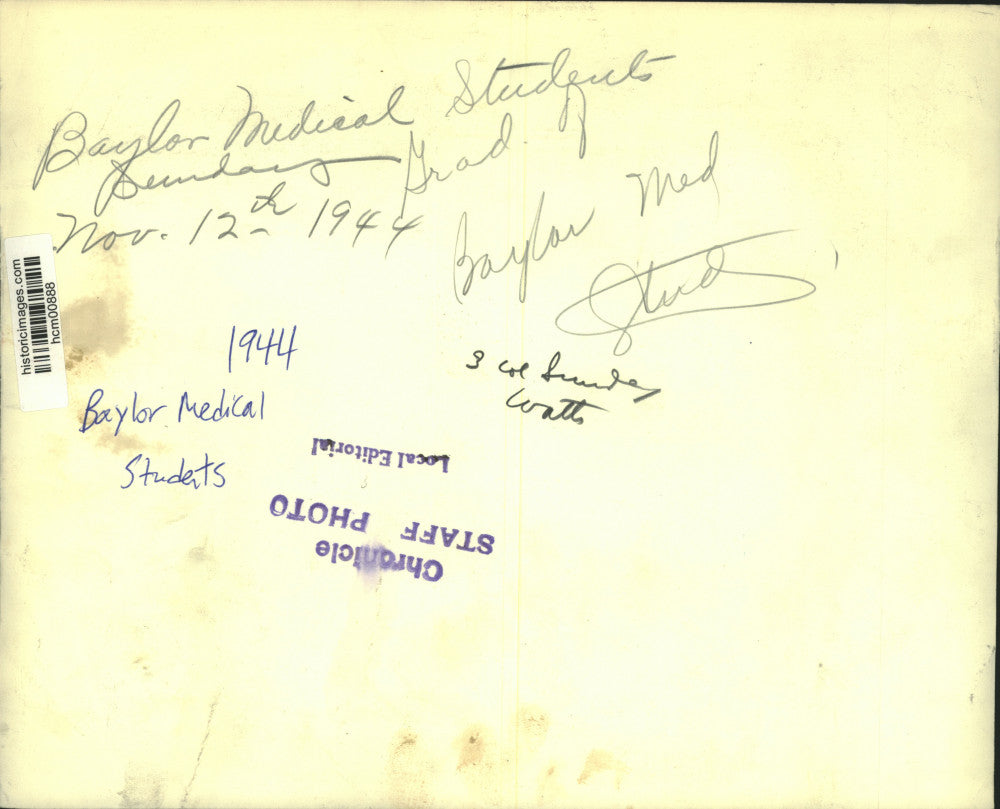 Baylor Medical Students
Sunday
Nov. 12th 1944
Grad. of
Baylor Med
Stud
historicimages.com
hcm00888
1944
Baylor Medical
Students
3 col Sunday
Watts
Local Editorial
STAFF PHOTO
Chronicle